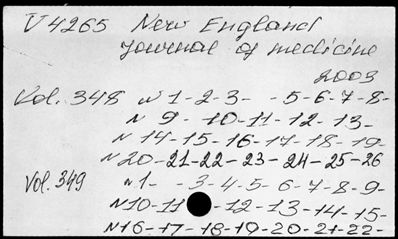 V 4265 New England
Journal of medicine
2003
Vol. 348 N 1-2-3- -5-6-7-8-
N 9- 10-11-12-13-
N 14-15-16-17-18-19-
N20-21-22-23-24-25-26
Vol. 349 N1- -3-4-5-6-7-8-9-
N10-11 -12-13-14-15-
N16-17-18-19-20-21-22-